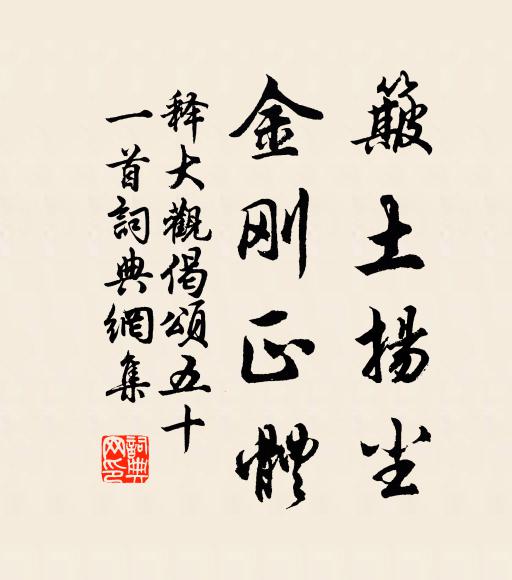 簸土揚尘
金刚正體
释大觀偈頌五十
一首詞典網集
詞典网印